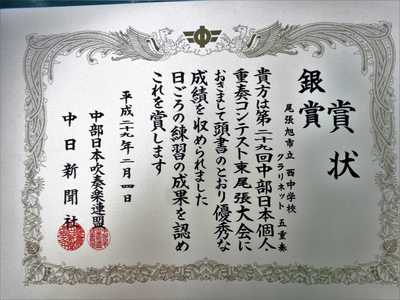 賞状
銀賞
尾張旭市立 西中学校
クラリネット 五重奏
貴方は第二十九回中部日本個人
重奏コンテスト東尾張大会に
おきまして頭書のとおり優秀な
成績を収められました
日ごろの練習の成果を認め
これを賞します
平成二十九年二月四日
中部日本吹奏楽連盟
中日新聞社